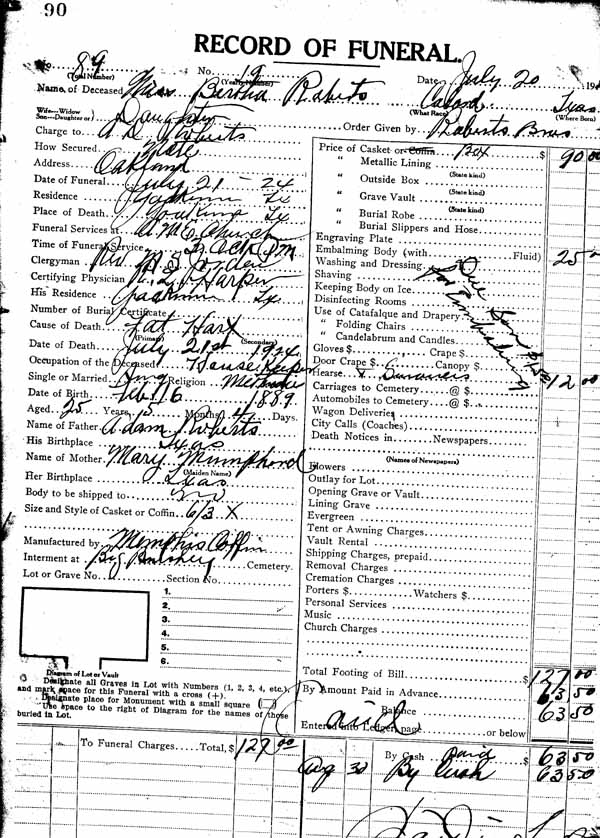 90
RECORD OF FUNERAL.
No. 89 No. 19 Date July 20 19
(Total Number) (Yearly Number)
Name of Deceased Miss Bertha Roberts Colord Texas
(What Race) (Where Born)
Wife—Widow
Son—Daughter or) Daughter
Order Given by Roberts Bros
Charge to A D Roberts
How Secured Note
Address Oakland
Date of Funeral July 21 - 24
Residence Tx
Place of Death Tx
Funeral Services at A.M.E. Church
Time of Funeral Service O Clock P.M
Clergyman Rev.
Certifying Physician Harper
His Residence Tx
Number of Burial Certificate
Cause of Death Fat Hart
(Primary) (Secondary)
Date of Death July 21st 1924
Occupation of the Deceased House Keeper
Single or Married Religion
Date of Birth Feb 16 1889
Aged 25 Years 5 Months 4 Days.
Name of Father Adam Roberts
His Birthplace Texas
Name of Mother Mary Mumphord
(Maiden Name)
Her Birthplace Texas
Body to be shipped to no
Size and Style of Casket or Coffin 6/3 X
Manufactured by Memphis Coffin
Interment at Big Cemetery.
Lot or Grave No. Section No.
1.
2.
3.
4.
5.
6.
Diagram of Lot or Vault
Designate all Graves in Lot with Numbers (1, 2, 3, 4, etc.),
and mark space for this Funeral with a cross (+).
Designate place for Monument with a small square (□)
Use space to the right of Diagram for the names of those
buried in Lot.
Price of Casket or Coffin Box $ 90 00
" Metallic Lining
(State kind)
" Outside Box
(State kind)
" Grave Vault
(State kind)
" Burial Robe
" Burial Slippers and Hose
Engraving Plate
Embalming Body (with Fluid) 25
Washing and Dressing
Shaving
Keeping Body on Ice
Disinfecting Rooms
Use of Catafalque and Drapery
" Folding Chairs
" Candelabrum and Candles
Gloves $ Crape $
Door Crape $ Canopy $
Hearse 12 00
Carriages to Cemetery @ $
Automobiles to Cemetery @ $
Wagon Deliveries
City Calls (Coaches)
Death Notices in Newspapers
(Names of Newspapers)
Flowers
Outlay for Lot
Opening Grave or Vault
Lining Grave
Evergreen
Tent or Awning Charges
Vault Rental
Shipping Charges, prepaid
Removal Charges
Cremation Charges
Porters $ Watchers $
Personal Services
Music
Church Charges
Total Footing of Bill $ 127 00
By Amount Paid in Advance 63 50
Balance 63 50
Entered into Ledger, page or below
To Funeral Charges Total, $ 127 00
By Cash $ 63 50
Aug 30 By Cash 63 50